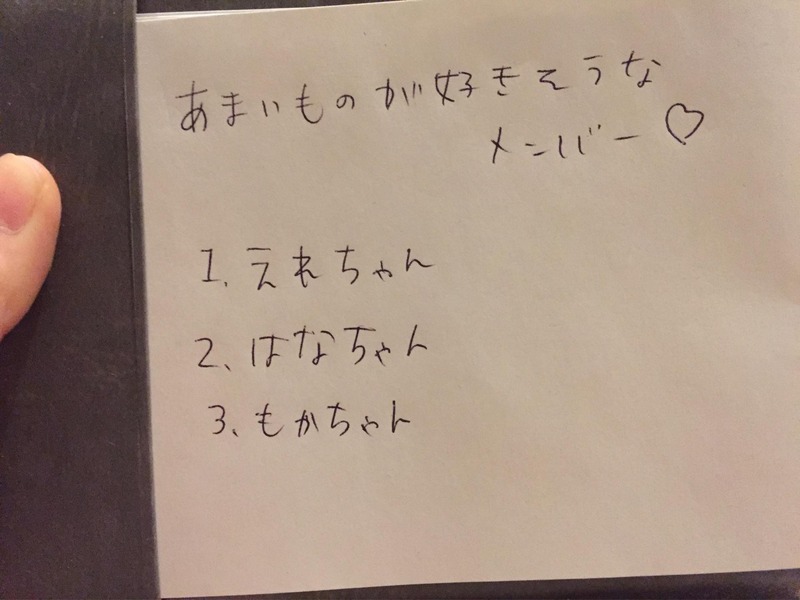 あまいものが好きそうな
メンバー♡
1、えれちゃん
2、はなちゃん
3、もかちゃん